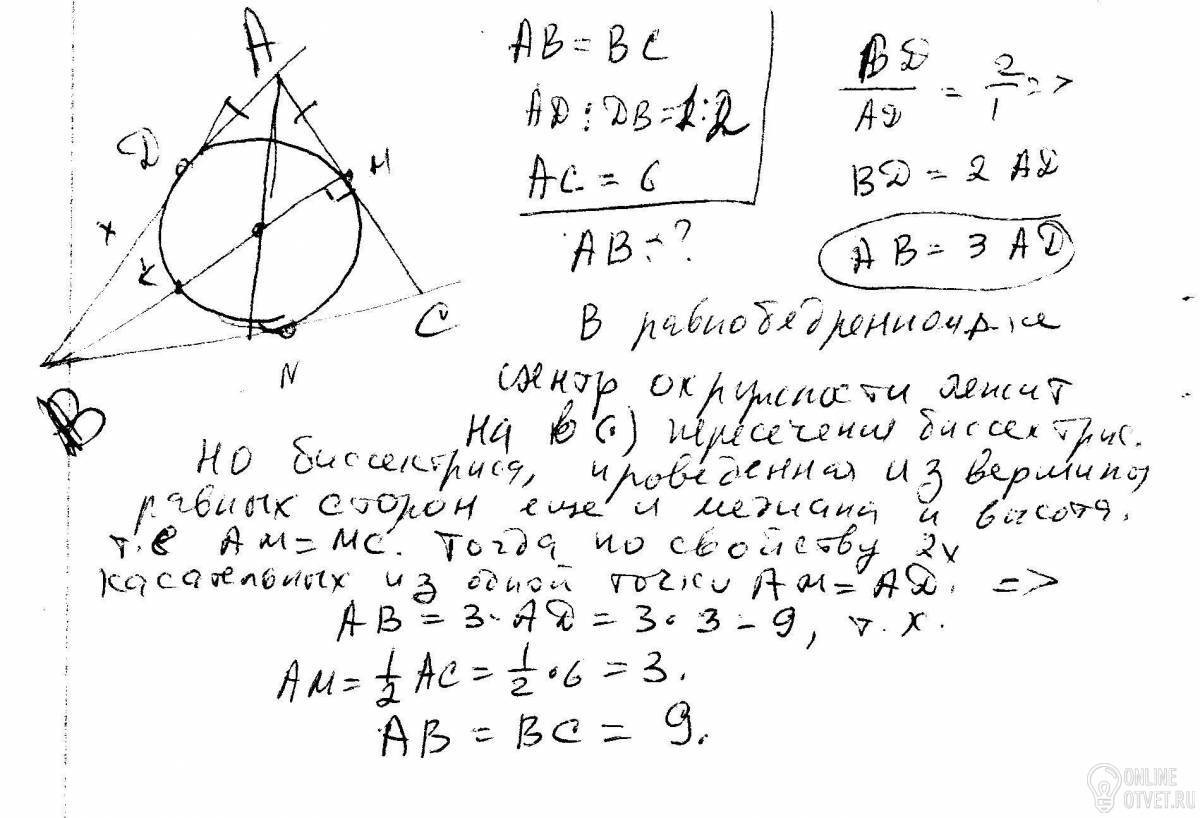 A
D
M
x
K
C
N
B
AB = BC
AD : DB = 1:2
AC = 6
AB - ?
BD/AD = 2/1 =>
BD = 2 AD
AB = 3 AD
В равнобедренном
центр окружности лежит
на в (.) пересечения биссектрис.
Но биссектриса, проведенная из вершины
равных сторон еще и медиана и высота.
т.е AM = MC. Тогда по свойству 2х
касательных из одной точки AM = AD. =>
AB = 3·AD = 3·3 - 9, т.к.
AM = 1/2 AC = 1/2·6 = 3.
AB = BC = 9.
ONLINE
OTVET.RU